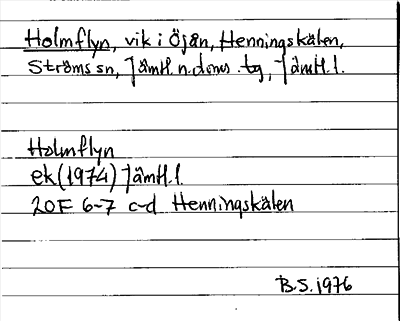 Holmflyn, vik i Öjån, Henningskälen,
Ströms sn, Jämtl. n. doms. tg, Jämtl. l.
Holmflyn
ek (1974) Jämtl. l.
20F 6-7 c-d Henningskälen
B.S. 1976